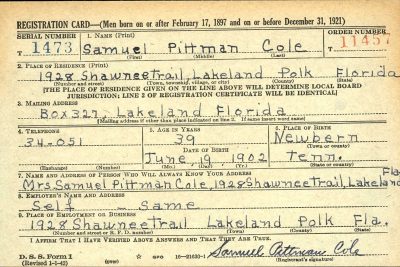 REGISTRATION CARD—(Men born on or after February 17, 1897 and on or before December 31, 1921)
SERIAL NUMBER 1. NAME (Print) ORDER NUMBER
T 1473 Samuel Pittman Cole 11457
(First) (Middle) (Last)
2. PLACE OF RESIDENCE (Print)
1928 Shawnee Trail, Lakeland Polk Florida
(Number and street) (Town, township, village, or city) (County) (State)
[THE PLACE OF RESIDENCE GIVEN ON THE LINE ABOVE WILL DETERMINE LOCAL BOARD
JURISDICTION; LINE 2 OF REGISTRATION CERTIFICATE WILL BE IDENTICAL]
3. MAILING ADDRESS
Box 327, Lakeland Florida
[Mailing address if other than place indicated on line 2. If same insert word same]
4. TELEPHONE 5. AGE IN YEARS 6. PLACE OF BIRTH
34-051 39 Newbern
DATE OF BIRTH (Town or county)
June 19 1902 Tenn.
(Exchange) (Number) (Mo.) (Day) (Yr.) (State or country)
7. NAME AND ADDRESS OF PERSON WHO WILL ALWAYS KNOW YOUR ADDRESS Fla
Mrs. Samuel Pittman Cole, 1928 Shawnee Trail, Lakeland
8. EMPLOYER'S NAME AND ADDRESS
Self - Same
9. PLACE OF EMPLOYMENT OR BUSINESS
1928 Shawnee Trail Lakeland Polk Fla.
(Number and street or R. F. D. number) (Town) (County) (State)
I AFFIRM THAT I HAVE VERIFIED ABOVE ANSWERS AND THAT THEY ARE TRUE.
D. S. S. Form 1 Samuel Pittman Cole
(Revised 1-1-42) GPO 16-21630-1 (Registrant's signature)